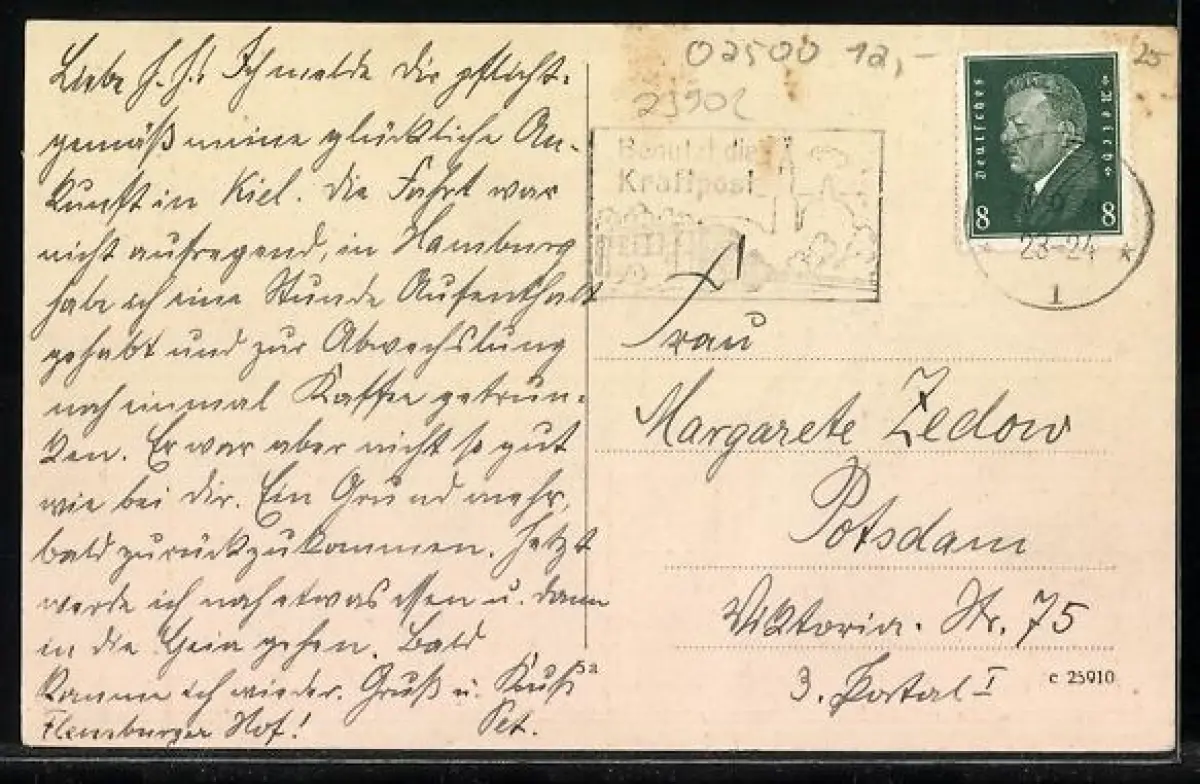 Liebe F. F.! Ich melde Dir pflicht-
gemäß meine glückliche An-
kunft in Kiel. Die Fahrt war
nicht aufregend, in Hamburg
habe ich eine Stunde Aufenthalt
gehabt und zur Abwechslung
noch einmal Kaffee getrun-
ken. Er war aber nicht so gut
wie bei Dir. Ein Grund mehr,
bald zurückzukommen. Jetzt
werde ich noch etwas essen u. dann
in die gehen. Bald
komme ich wieder. Gruß u. Kuß
Flensburger Hof! Pet.
02500 12,-
25
2390
Benutzt die
Kraftpost
Deutsches Reich
8 8
23-24
1
Frau
Margarete Zedow
Potsdam
Viktoria-Str. 75
3. Portal I
c 25910